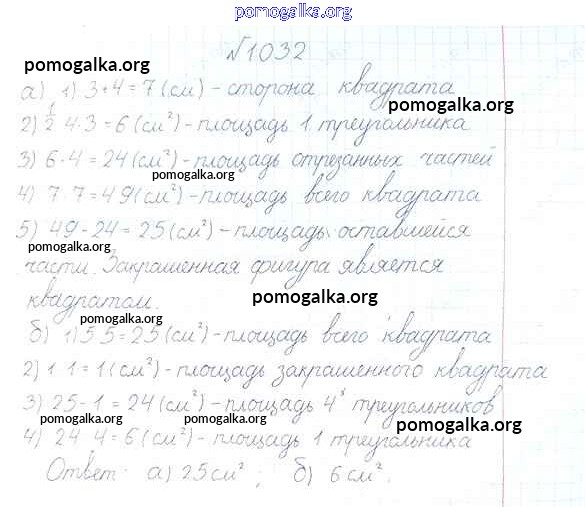 pomogalka.org
№1032
pomogalka.org
а) 1) 3+4=7 (см) - сторона квадрата
pomogalka.org
2) 1/2 4·3=6 (см²) - площадь 1 треугольника
3) 6·4=24 (см²) - площадь отрезанных частей
pomogalka.org
4) 7·7=49 (см²) - площадь всего квадрата
5) 49-24=25 (см²) - площадь оставшейся
pomogalka.org
части. Закрашенная фигура является
квадратом.
pomogalka.org
б) 1) 5 5=25 (см²) - площадь всего квадрата
2) 1 1=1 (см²) - площадь закрашенного квадрата
3) 25-1=24 (см²) - площадь 4х треугольников
pomogalka.org pomogalka.org pomogalka.org
4) 24 4=6 (см²) - площадь 1 треугольника
Ответ: а) 25 см²; б) 6 см².